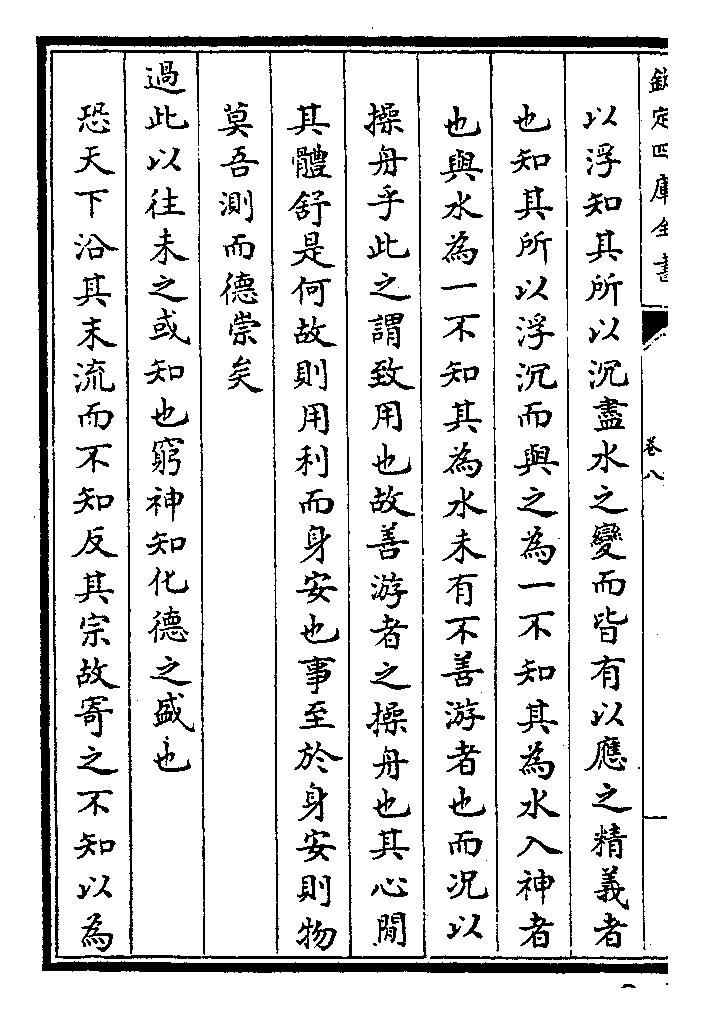 欽定四庫全書
卷八
以浮知其所以沉盡水之變而皆有以應之精義者
也知其所以浮沉而與之為一不知其為水入神者
也與水為一不知其為水未有不善游者也而況以
操舟乎此之謂致用也故善游者之操舟也其心閒
其體舒是何故則用利而身安也事至於身安則物
莫吾測而德崇矣
過此以往未之或知也窮神知化德之盛也
恐天下沿其末流而不知反其宗故寄之不知以為